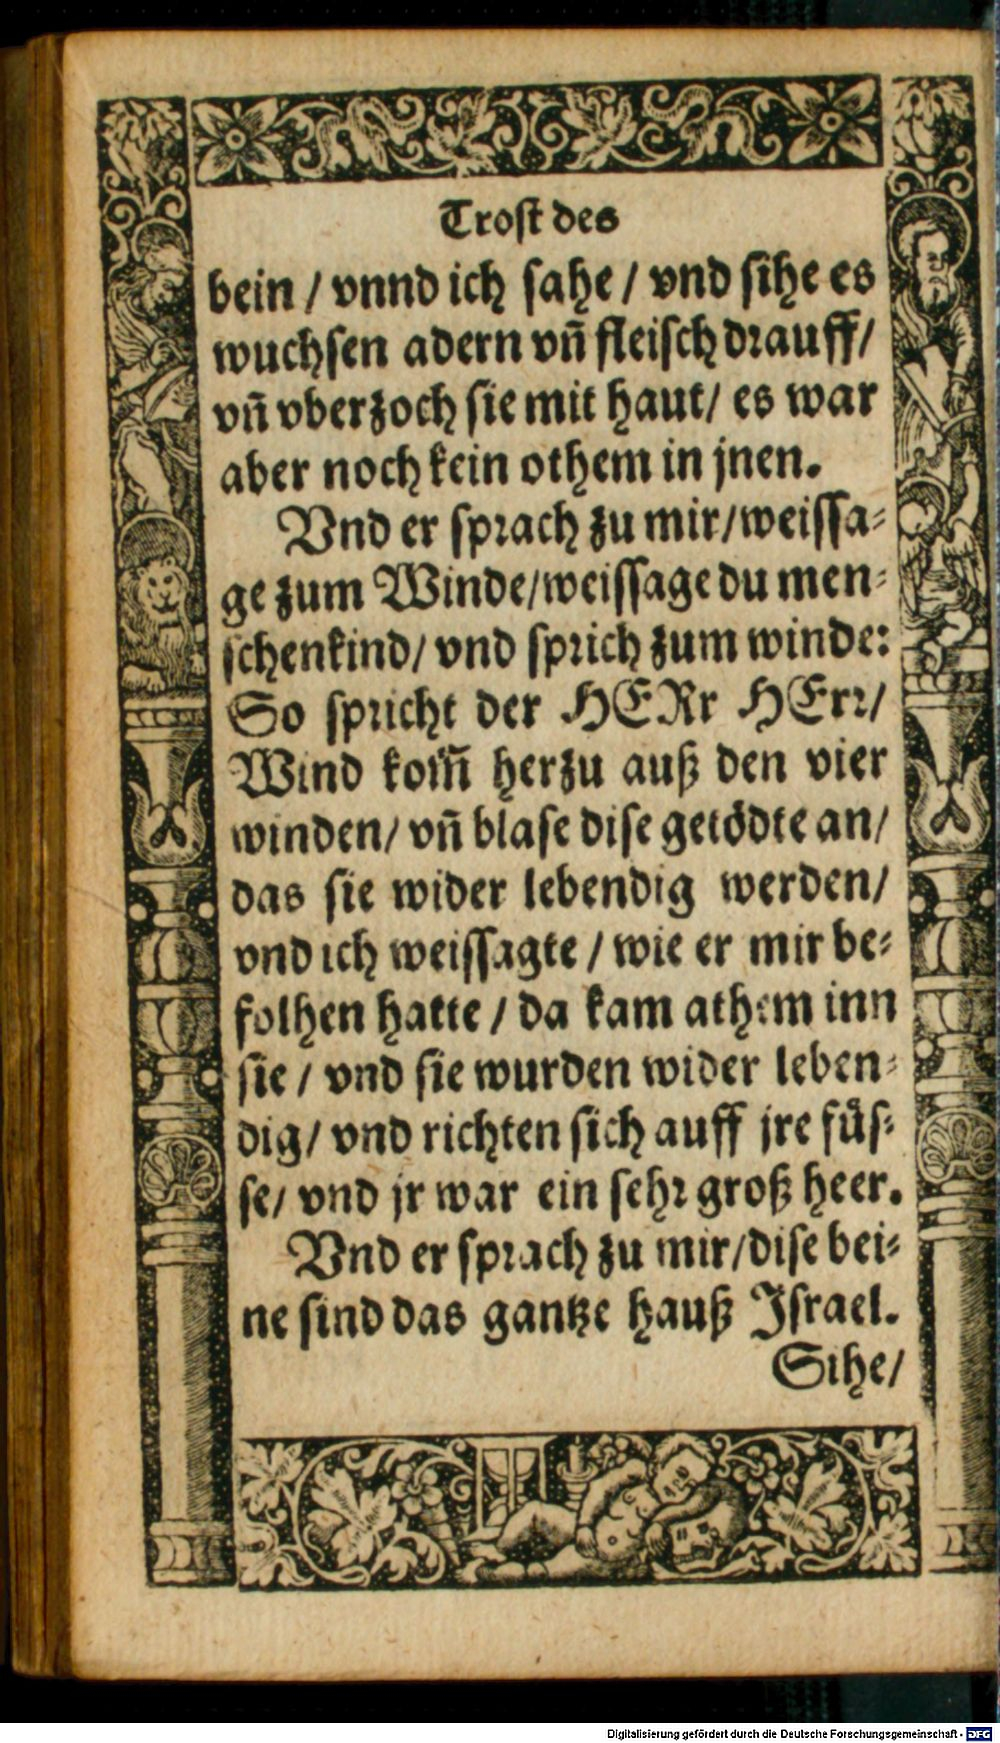 Trost des
bein / vnnd ich sahe / vnd sihe es
wuchsen adern vñ fleisch drauff/
vñ vberzoch sie mit haut/ es war
aber noch kein othem in jnen.
Vnd er sprach zu mir/weissa-
ge zum Winde/weissage du men-
schenkind/ vnd sprich zum winde:
So spricht der HERr HErr/
Wind kom̃ herzu auß den vier
winden/ vñ blase dise getödte an/
das sie wider lebendig werden/
vnd ich weissagte / wie er mir be-
folhen hatte / da kam athem inn
sie / vnd sie wurden wider leben-
dig/ vnd richten sich auff jre füs-
se/ vnd jr war ein sehr groß heer.
Vnd er sprach zu mir/dise bei-
ne sind das gantze hauß Israel.
Sihe/
Digitalisierung gefördert durch die Deutsche Forschungsgemeinschaft - DFG